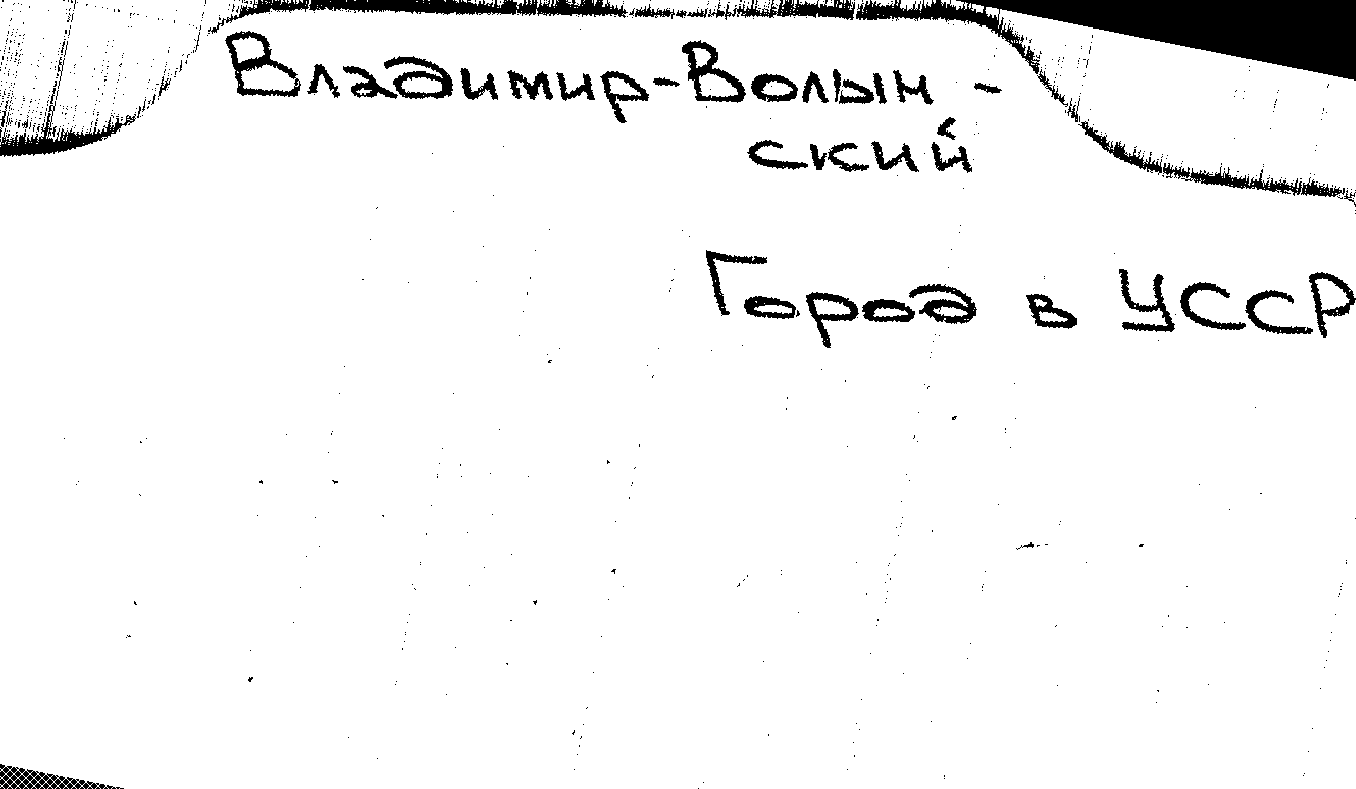 Владимир-Волын-
ский
Город в УССР